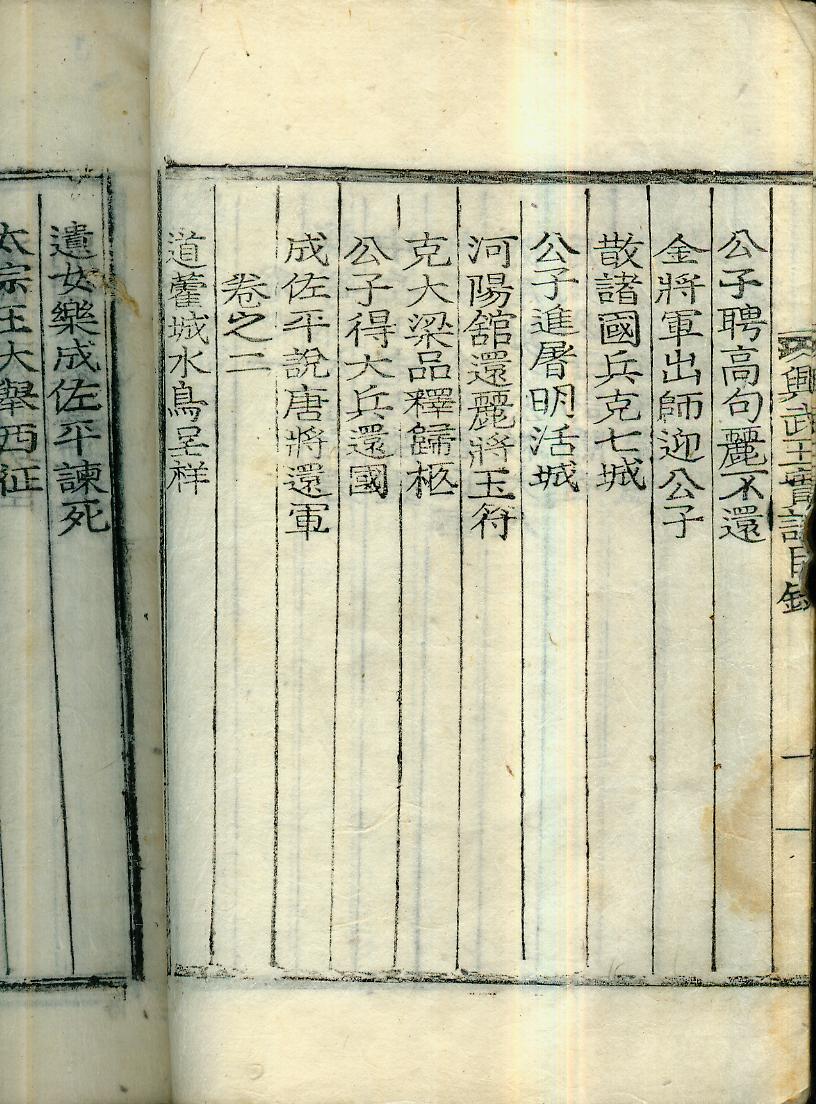 興武王實記目録
一
公子聘高句麗不還
金將軍出師迎公子
散諸國兵克七城
公子進屠明活城
河陽舘還麗將玉符
克大梁品釋歸柩
公子得大兵還國
成佐平說唐將還軍
卷之二
道藿城水鳥呈祥
遺女樂成佐平諫死
太宗王大擧西征